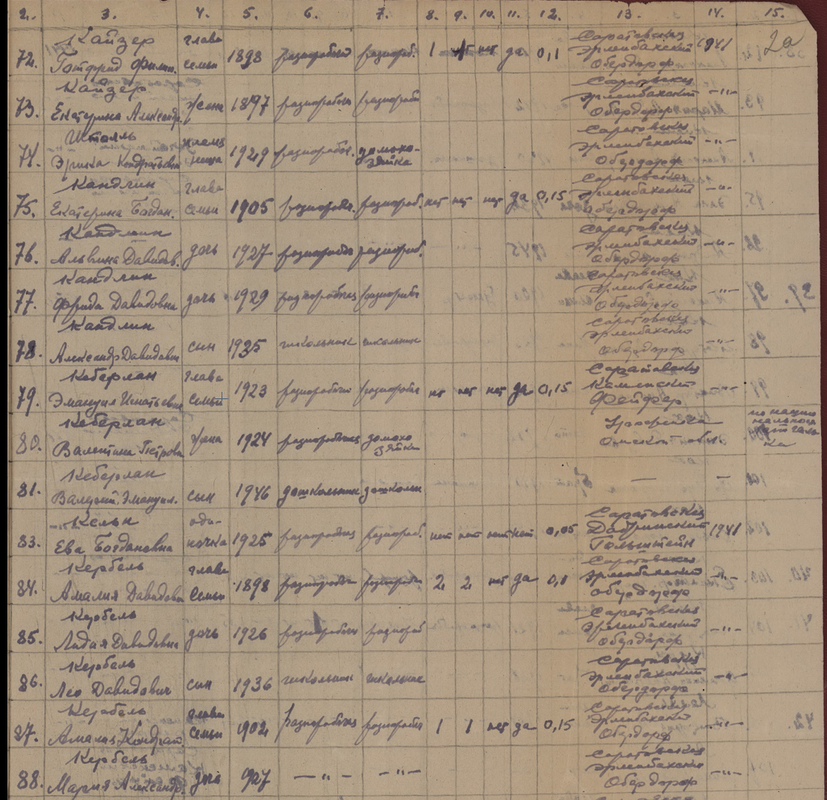 2. 3. 4. 5. 6. 7. 8. 9. 10. 11. 12. 13. 14. 15.
2а
Кайзер глава Саратовская
72. Готфрид Филип. семьи 1898 разнорабочий разнораб. 1 нет да 0,1 Эрленбахский 1941
Обердорф
Кайзер Саратовская
73. Екатерина Александр. жена 1897 разнорабоч разнорабо Эрленбахский -"-
Обердорф
Шталь племян Саратовская
74. Эрика Кондратьевна ница 1929 разнорабоч. домохо- Эрленбахский -"-
зяйка Обердорф
Кандлин глава Саратовская
75. Екатерина Богдан. семьи 1905 разнорабоч. разнораб. нет нет нет да 0,15 Эрленбахский -"-
Обердорф
Кандлин Саратовская
76. Альвина Давидов. дочь 1927 разнорабоч разнораб. Эрленбахский -"-
Обердорф
Кандлин Саратовская
77. Фрида Давидовна дочь 1929 разнорабочая разнорабо Эрленбахский -"-
Обердорф
Кандлин Саратовская
78. Александр Давидович сын 1935 школьник школьник Эрленбахский
Обердорф -"-
Кеберлан глава Саратовская
79. Эмануил Игнатьевич семьи 1923 разнорабочий разнорабо нет нет нет да 0,15 Каменский -"-
Фейфер
Кеберлан по нацио
80. Валентина Петровна жена 1924 разнорабочая домохо зяйка Омской область
Кеберлан
81. Валерий Эмануил. сын 1946 дошкольник дошкольн — —
Кельн оди- Саратовская
83. Ева Богдановна ночка 1925 разнорабочая разнораб. нет нет нет нет 0,05 1941
Гольштейн
Кербель глава Саратовская
84. Амалия Давидовна семьи 1898 разнорабоч разнорабо 2 2 нет да 0,1 Эрленбахский -"-
Обердорф
Кербель Саратовская
85. Лидия Давидовна дочь 1926 разнорабочая разнораб Эрленбахский -"-
Обердорф
Кербель Саратовская
86. Лео Давидович сын 1936 школьник школьник Эрленбахский -"-
Обердорф
Кербель глава Саратовская
87. Амалия Кондрат. семьи 1902 разнорабочая разнорабо 1 1 нет да 0,15 Эрленбахский -"-
Обердорф
Кербель Саратовская
88. Мария Александр. дочь 1927 -"- -"- Эрленбахский -"-
Обердорф